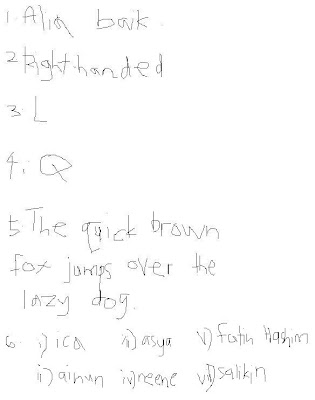 1. Alia baik.
2 Right handed
3. L
4. Q
5. The quick brown
fox jumps over the
lazy dog.
6. i) ica iii) asya v) fatin Hashim
ii) ainun iv) neene vi) salikin